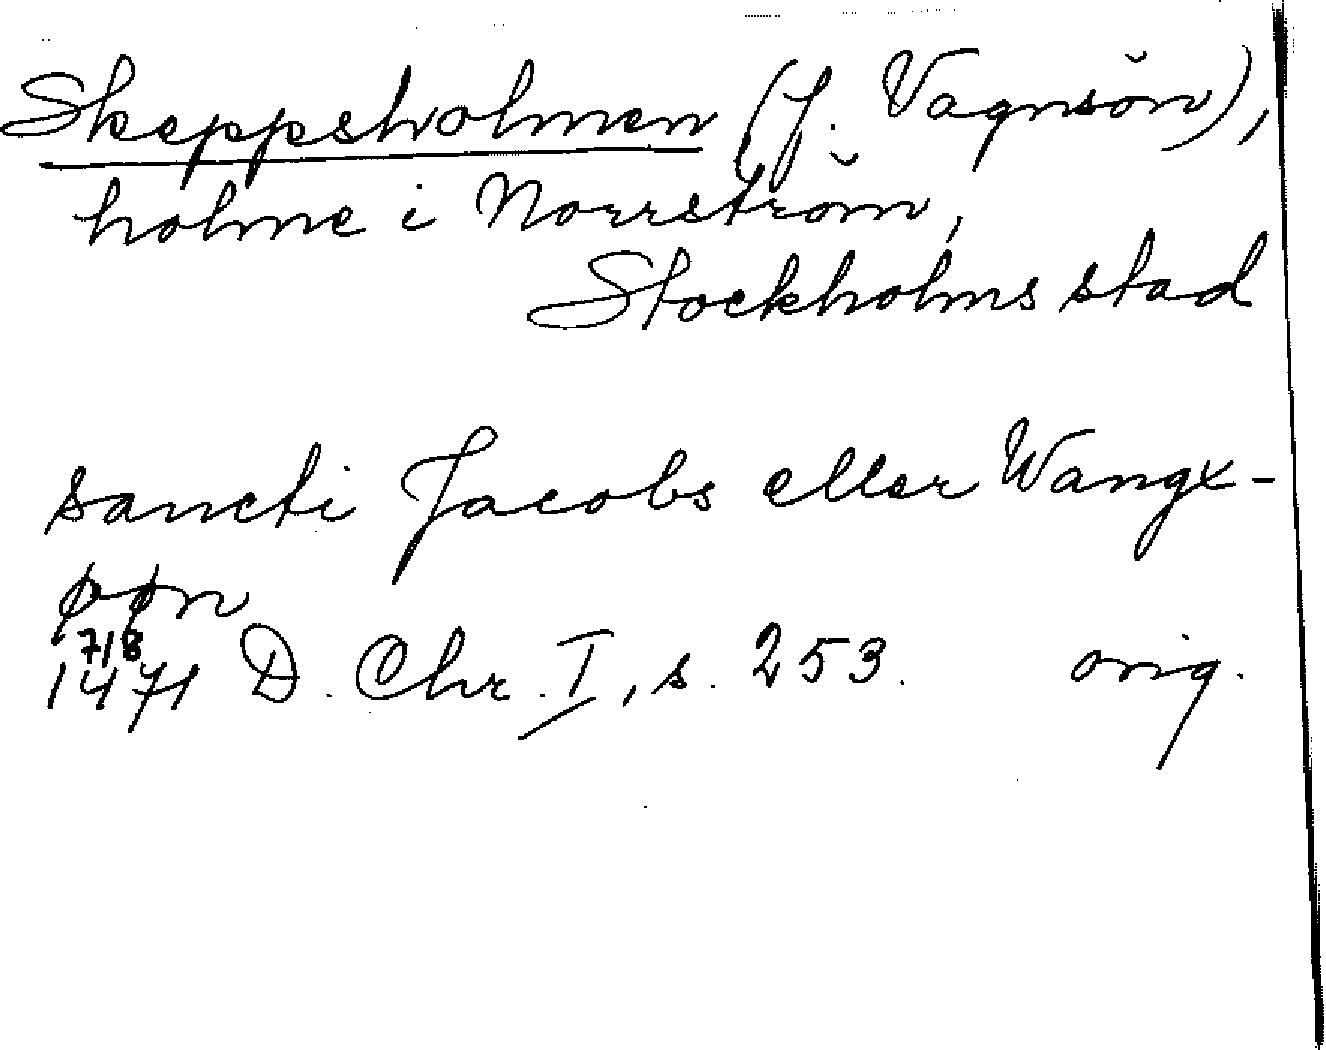 Skeppsholmen (f. Vagnsön),
holme i Norrström,
Stockholms stad
sancti Jacobs eller Wangx-
øøn
7/8
1471 D. Chr. I, s. 253. orig.